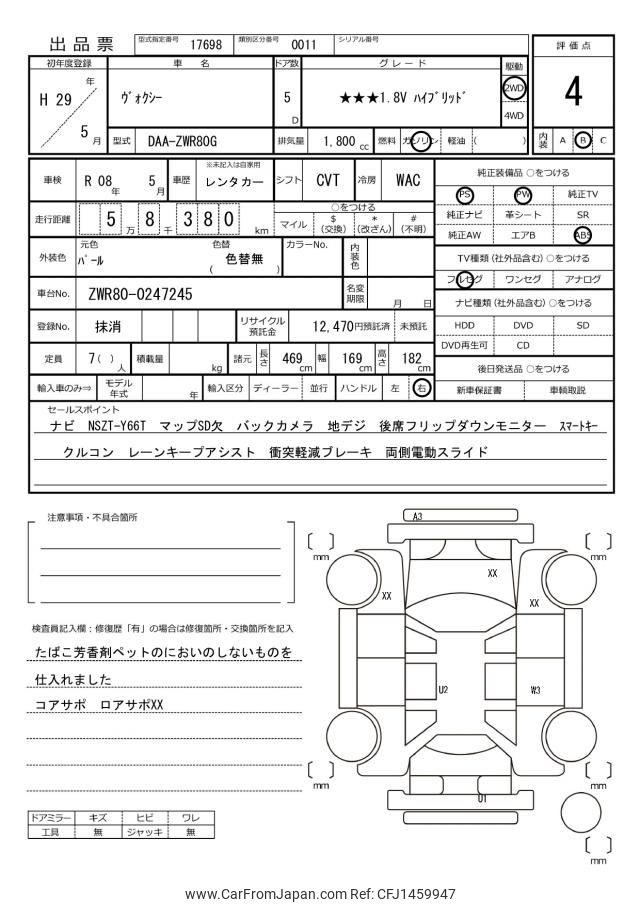 出品票
型式指定番号 17698 類別区分番号 0011 シリアル番号
評価点
4
初年度登録 車名 ドア数 グレード 駆動
H 29 年 5 月
ヴォクシー 5 D ★★★1.8V ハイブリッド 2WD
4WD
型式 DAA-ZWR80G 排気量 1,800 cc 燃料 ガソリン 軽油 ( ) 内装 A B C
車検 R 08 年 5 月 車歴 ※未記入は自家用 レンタカー シフト CVT 冷房 WAC
純正装備品 ○をつける
PS PW 純正TV
純正ナビ 革シート SR
純正AW エアB ABS
走行距離 5 万 8 千 3 8 0 km
○をつける
マイル $ (交換) * (改ざん) # (不明)
外装色 元色 パール 色替 ( 色替無 ) カラーNo. 内装色
TV種類(社外品含む) ○をつける
フルセグ ワンセグ アナログ
車台No. ZWR80-0247245 名変期限 月 日
ナビ種類(社外品含む) ○をつける
HDD DVD SD
DVD再生可 CD
登録No. 抹消 リサイクル預託金 12,470円預託済 未預託
定員 7( ) 人 積載量 kg 諸元 長さ 469 cm 幅 169 cm 高さ 182 cm
後日発送品 ○をつける
新車保証書 車輌取説
輸入車のみ⇒ モデル年式 年 輸入区分 ディーラー 並行 ハンドル 左 右
セールスポイント
ナビ NSZT-Y66T マップSD欠 バックカメラ 地デジ 後席フリップダウンモニター スマートキー
クルコン レーンキープアシスト 衝突軽減ブレーキ 両側電動スライド
注意事項・不具合箇所
A3
mm mm
XX
XX
XX
検査員記入欄:修復歴「有」の場合は修復箇所・交換箇所を記入
たばこ芳香剤ペットのにおいのしないものを
仕入れました
コアサポ ロアサポXX
U2 W3
mm mm
U1
ドアミラー キズ ヒビ ワレ
工具 無 ジャッキ 無
mm
www.CarFromJapan.com Ref: CFJ1459947